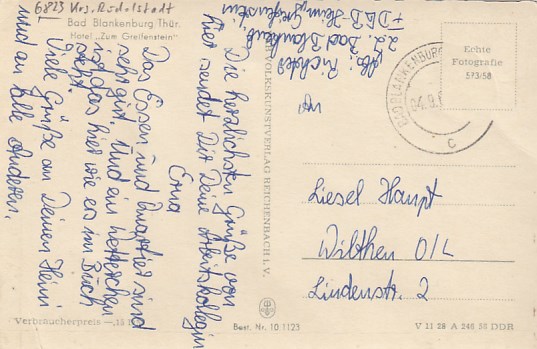 6823 Krs. Rudolstadt
Bad Blankenburg Thür.
Hotel „Zum Greifenstein"
Die herzlichsten Grüße von
hier sendet Dir Deine Arbeitskollegin
Erna
Das Essen und Quartier sind
sehr gut. Und ein
ist das hier wie es im Buch
steht.
Viele Grüße an Deinen Heini
und an alle Anderen.
Abs: Richter
z.Z. Bad Blankenburg
FDGB-Heim Greifenstein
VOLKSKUNSTVERLAG REICHENBACH I. V.
Echte
Fotografie
573/58
BAD BLANKENBURG
c
An
Liesel Haupt
Wilthen O/L
Lindenstr. 2
Verbraucherpreis
Best. Nr. 10 1123
V 11 28 A 246 58 DDR